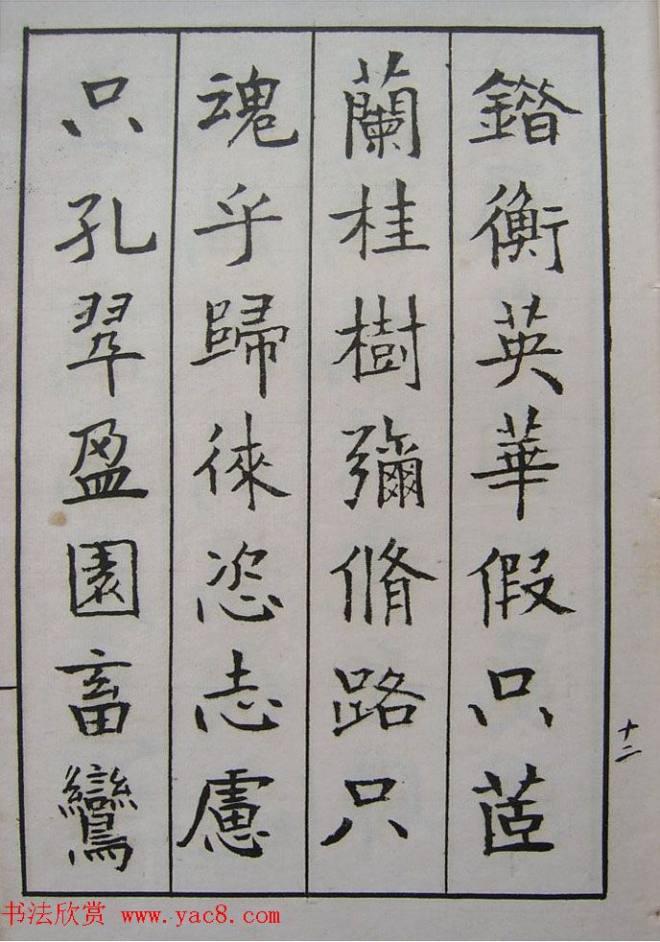 錯衡英華假只茝
蘭桂樹彌脩路只
魂乎歸徠恣志慮
只孔翆盈園畜鸞
十二
书法欣赏 www.yac8.com